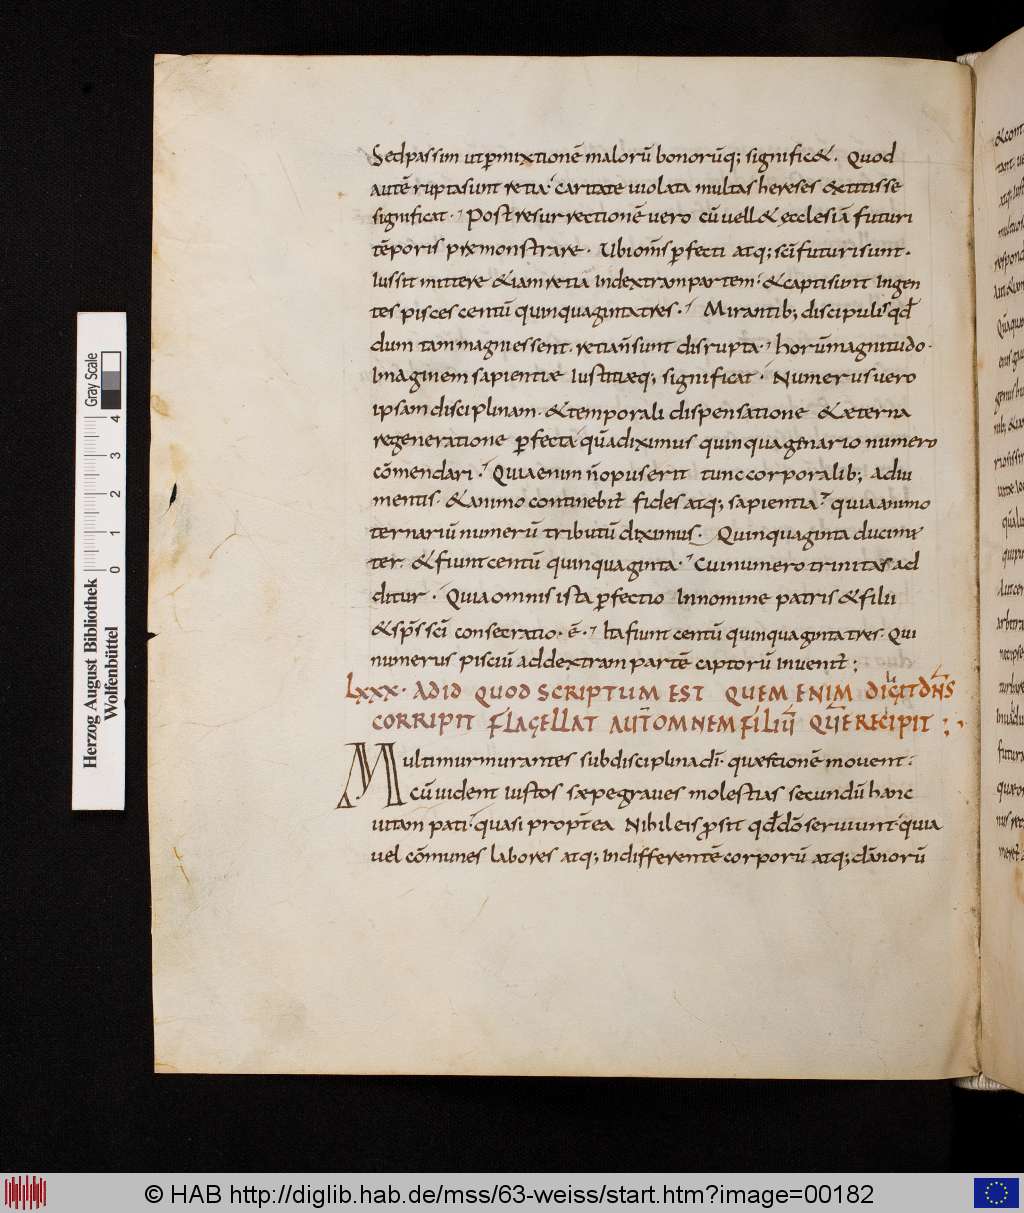 Sed passim ut p̱mixtionē malorū bonorūq; signific&. Quod
autē rupta sunt retia. caritate uiolata multas hereses extitisse
significat. Post resurrectionē uero cū uell& ęcclesiā futuri
tēporis præmonstrare. Ubi om̄s p̱fecti atq; sc̄i futuri sunt.
Iussit mittere & iam retiā In dextram partem. & capti sunt Ingen
tes pisces centū quinquaginta tres. Mirantib; discipulis qđ
dum tam magni essent. retia n̄ sunt disrupta. horū magnitudo.
Imaginem sapientiæ Iustitiæq; significat. Numerus uero
ipsam disciplinam. & temporali dispensatione & æterna
regeneratione p̱fectā quā diximus quinquagenario numero
cōmendari. Quia enim n̄ opus erit tunc corporalib; adiu
mentis. & animo continebit̄ fides atq; sapientia. quia animo
ternariū numerū tributū diximus. Quinquaginta ducim̄
ter. & fiunt centū quinquaginta. Cui numero trinitas ad
ditur. Quia omnis ista p̱fectio In nomine patris & filii
& sp̄s sc̄i consecratio. ē. Ita fiunt centū quinquaginta tres. Qui
numerus pisciū ad dextram partē captorū inuenit̄;
LXXX. AD ID QUOD SCRIPTUM EST QUEM ENIM DILIGIT DN̄S
CORRIPIT FLAGELLAT AUT̄ OMNEM FILIŪ QUĒ RECIPIT:
Multi murmurantes sub disciplina dī. quæstionē mouent.
cū uident iustos sæpe graues molestias secundū hanc
uitam pati. quasi propt̄ea Nihil eis p̱sit qđ dō seruiunt. quia
uel cōmunes labores atq; indifferentē corporū atq; dānorū
Gray Scale
4
3
2
1
0
Herzog August Bibliothek
Wolfenbüttel
© HAB http://diglib.hab.de/mss/63-weiss/start.htm?image=00182